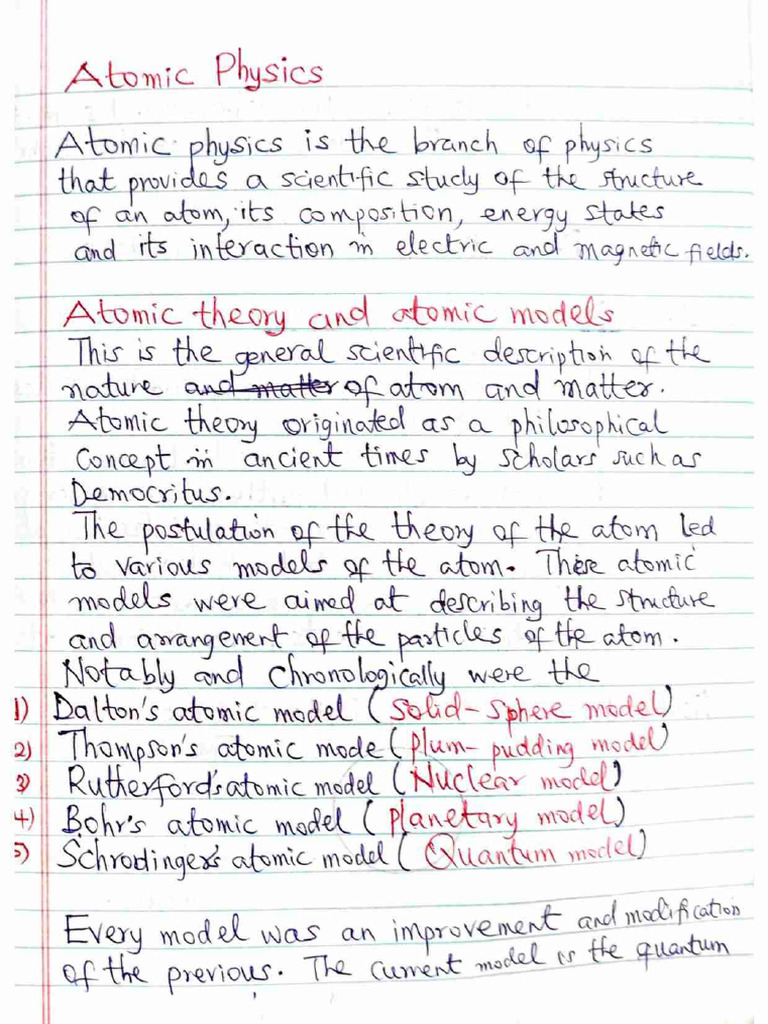 Atomic Physics
Atomic physics is the branch of physics
that provides a scientific study of the structure
of an atom, its composition, energy states
and its interaction in electric and magnetic fields.
Atomic theory and atomic models
This is the general scientific description of the
nature and matter of atom and matter.
Atomic theory originated as a philosophical
Concept in ancient times by scholars such as
Democritus.
The postulation of the theory of the atom led
to various models of the atom. These atomic
models were aimed at describing the structure
and arrangement of the particles of the atom.
Notably and chronologically were the
1) Dalton's atomic model (Solid-Sphere model)
2) Thompson's atomic mode (Plum-pudding model)
3) Rutherford's atomic model (Nuclear model)
4) Bohr's atomic model (Planetary model)
5) Schrodinger's atomic model (Quantum model)
Every model was an improvement and modification
of the previous. The current model is the quantum